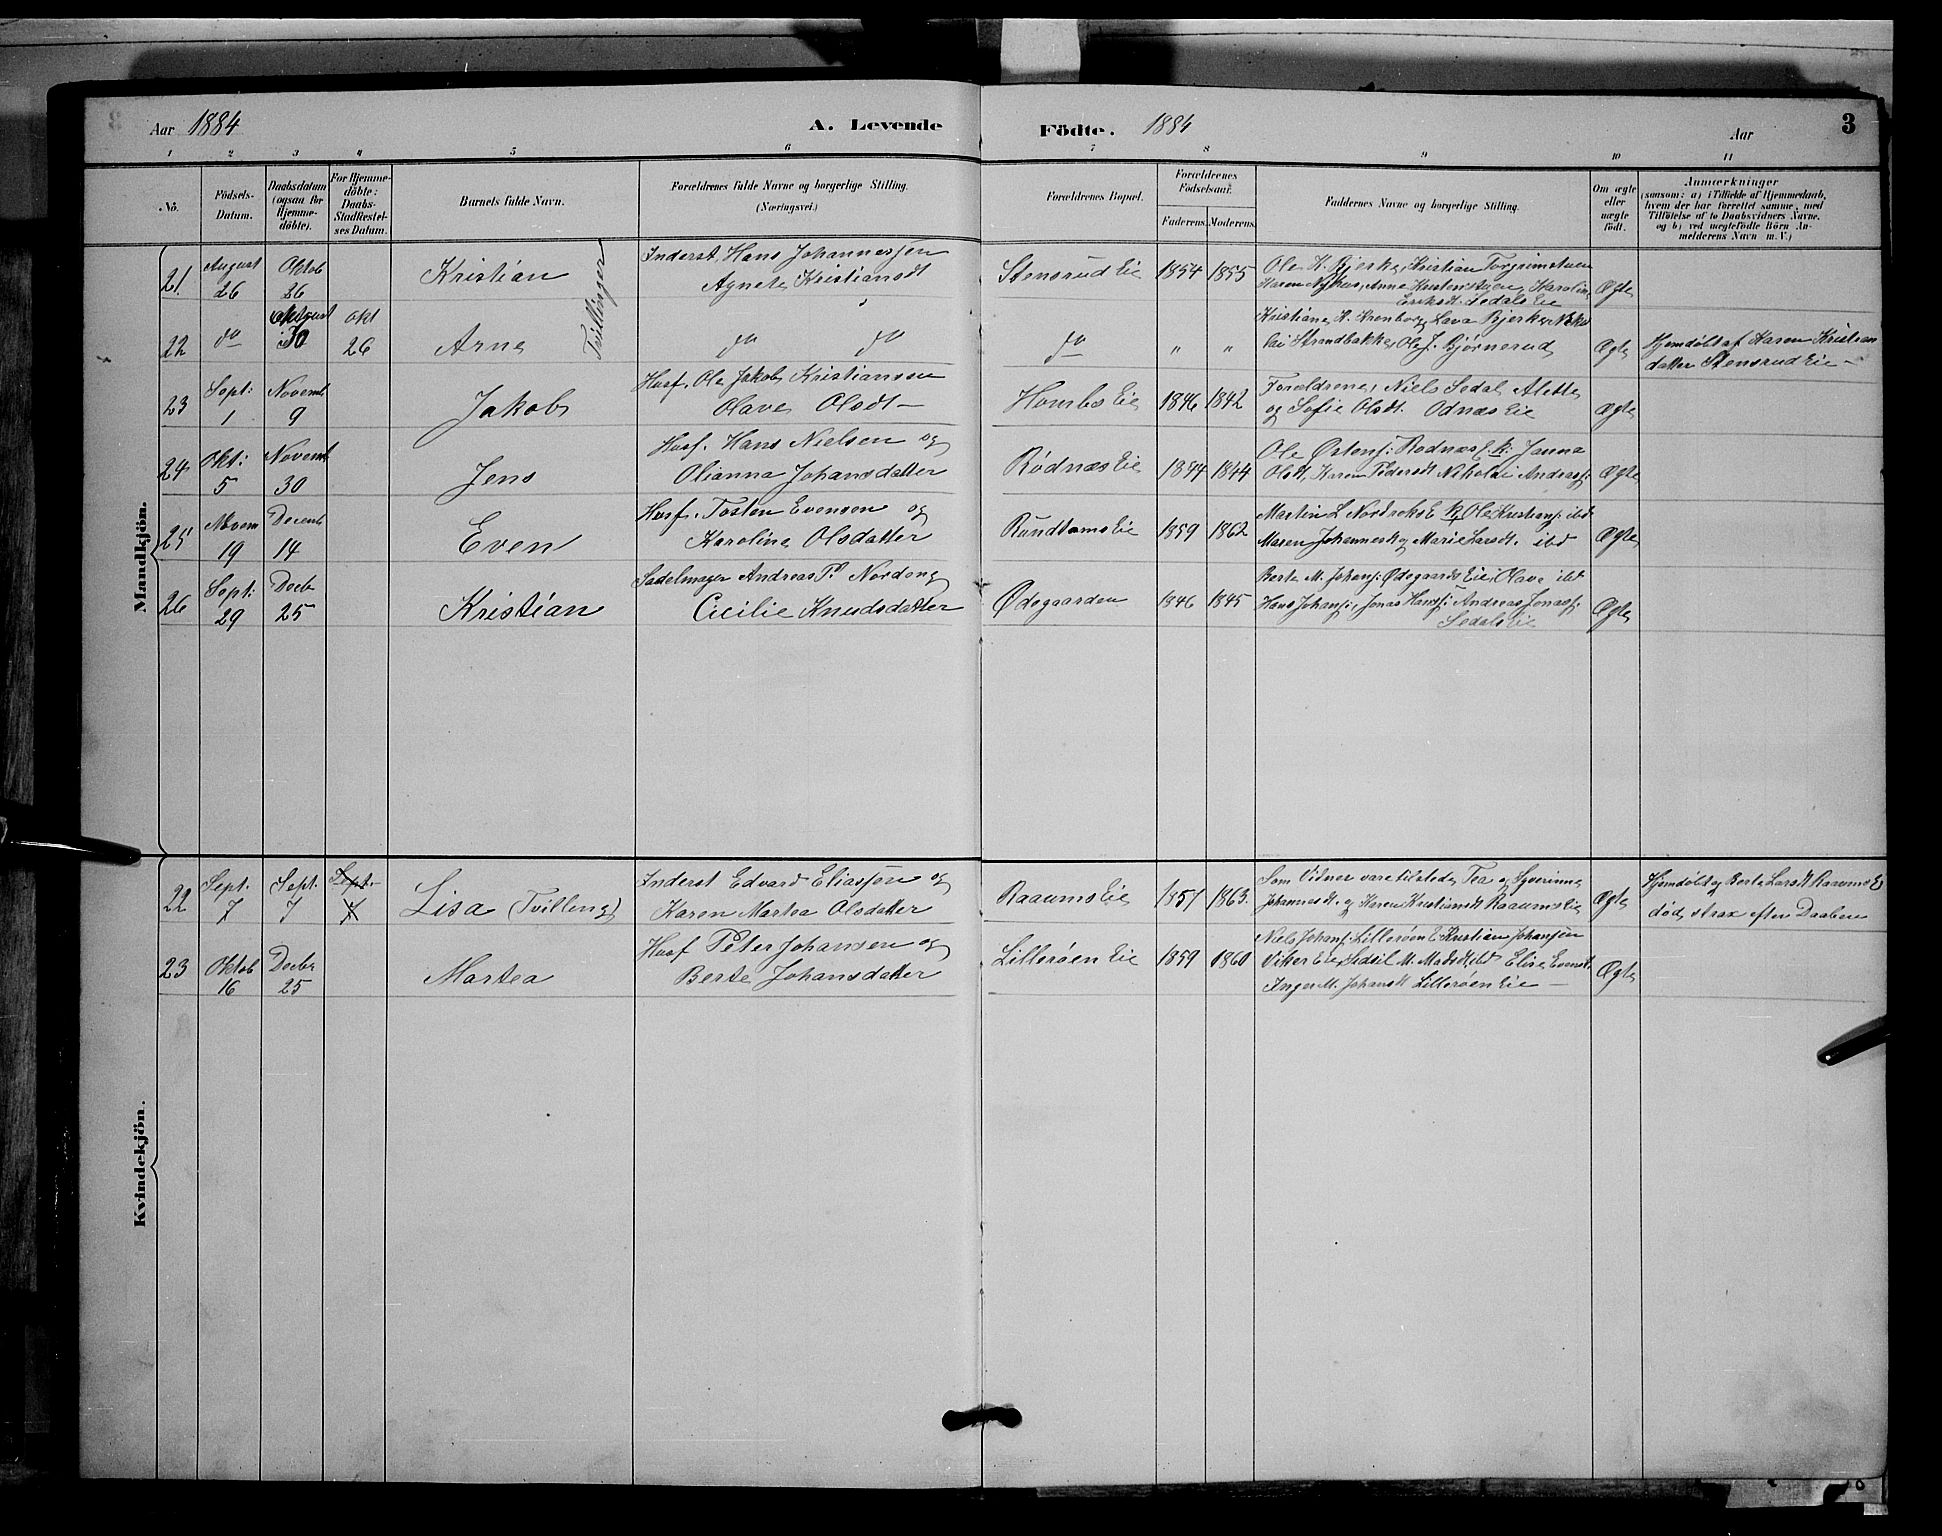 Aar 1884
A. Levende
Födte. 1884
Aar
3
1 2 3 4 5 6 7 8 9 10 11
No.
Födsels-
Datum.
Daabsdatum
(ogsaa for
Hjemme-
döbte).
For Hjemme-
döbte:
Daabs-
Stadfæstel-
ses Datum.
Barnets fulde Navn.
Forældrenes fulde Navne og borgerlige Stilling.
(Næringsvei.)
Forældrenes Bopæl.
Forældrenes
Födselsaar.
Faderens. Moderens.
Faddernes Navne og borgerlige Stilling.
Om ægte
eller
uægte
födt.
Anmærkninger
(saasom: a) i Tilfælde af Hjemmedaab,
hvem der har forrettet samme, med
Tilföielse af to Daabsvidners Navne.
og b) ved uægtefödte Börn An-
melderens Navn m. V.)
Mandkjön.
21. August 26 Oktob 26
Kristian
Tvillinger
Inderst Hans Johannessen
Agnete Kristiansdt
Stensrud Eie 1854 1855
Ole K. Bjerke, Kristian Torgrimstuen
Haren Nyhus, Anne Kristenstuen, Karoline
Eriksdt. Sedals Eie
Ægte
22 do 30 Okt 26
Arne
do do
do " "
Kristiane H. Kronborg, Lava Bjerke, Nko
lai Strandbakke, Ole J. Bjørnerud
Ægte
Hjemdöbt af Karen Kristian
datter Stensrud Eie –
23 Sept: 1 Novemb 9
Jakob
Husf. Ole Jakob Kristiansen
Olave Olsdt –
Hombs Eie 1846 1842
Forældrene, Niels Sedal Alette
og Sofie Olsdt. Odnæs Eie
Ægte
24 Okt: 5 Novemb 30
Jens
Husf. Hans Nielsen og
Olianna Johansdatter
Rødnæs Eie 1844 1844
Ole Østens: Rodnæs E. k: Janna
Olsdt, Karen Pedersdt Nikolai Andreas:
Ægte
25 Novem 19 Decemb 14
Even
Husf. Tosten Evensen og
Karoline Olsdatter
Rundtoms Eie 1859 1862
Martin L Nordroks E k, Ole Kristians: ibd
Maren Johannesdt og Marie Larsdt. ibd
Ægte
26 Sept: 29 Decbr 25
Kristian
Sadelmager Andreas P. Nordeng
Cecilie Knudsdatter
Ødegaarden 1846 1845
Berte M. Johans: Ødegaards Eie, Olave ibd
Hans Johans:, Jonas Hans: Andreas Jonas:
Sedals Eie
Ægte
Kvindekjön.
22 Sept. 7 Sept. 7 Sept. 7
Lisa (Tvilling)
Inderst Edvard Eliassen og
Karen Martea Olsdatter
Raaums Eie 1857 1863.
Som Vidner vare tilstede, Tea og Syverinne
Johannesdt. og Karen Kristiansdt Raaums Eie
Ægte
Hjemdöbt af Berte Larsdt Raaums E
död strax efter Daaben
23 Oktob 16 Decbr 25
Martea
Husf Peter Johansen og
Berte Johansdatter
Lillerøen Eie 1859 1860
Niels Johans: Lillerøen E Kristian Johansen
Viker Eie, Sidsil M. Madsdt, ibd Elise Evensdt
Inger M. Johansdt Lillerøen Eie –
Ægte